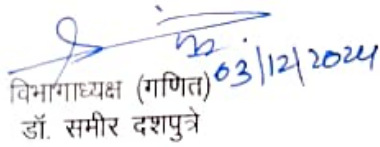 03/12/2024
विभागाध्यक्ष (गणित)
डॉ. समीर दशपुत्रे